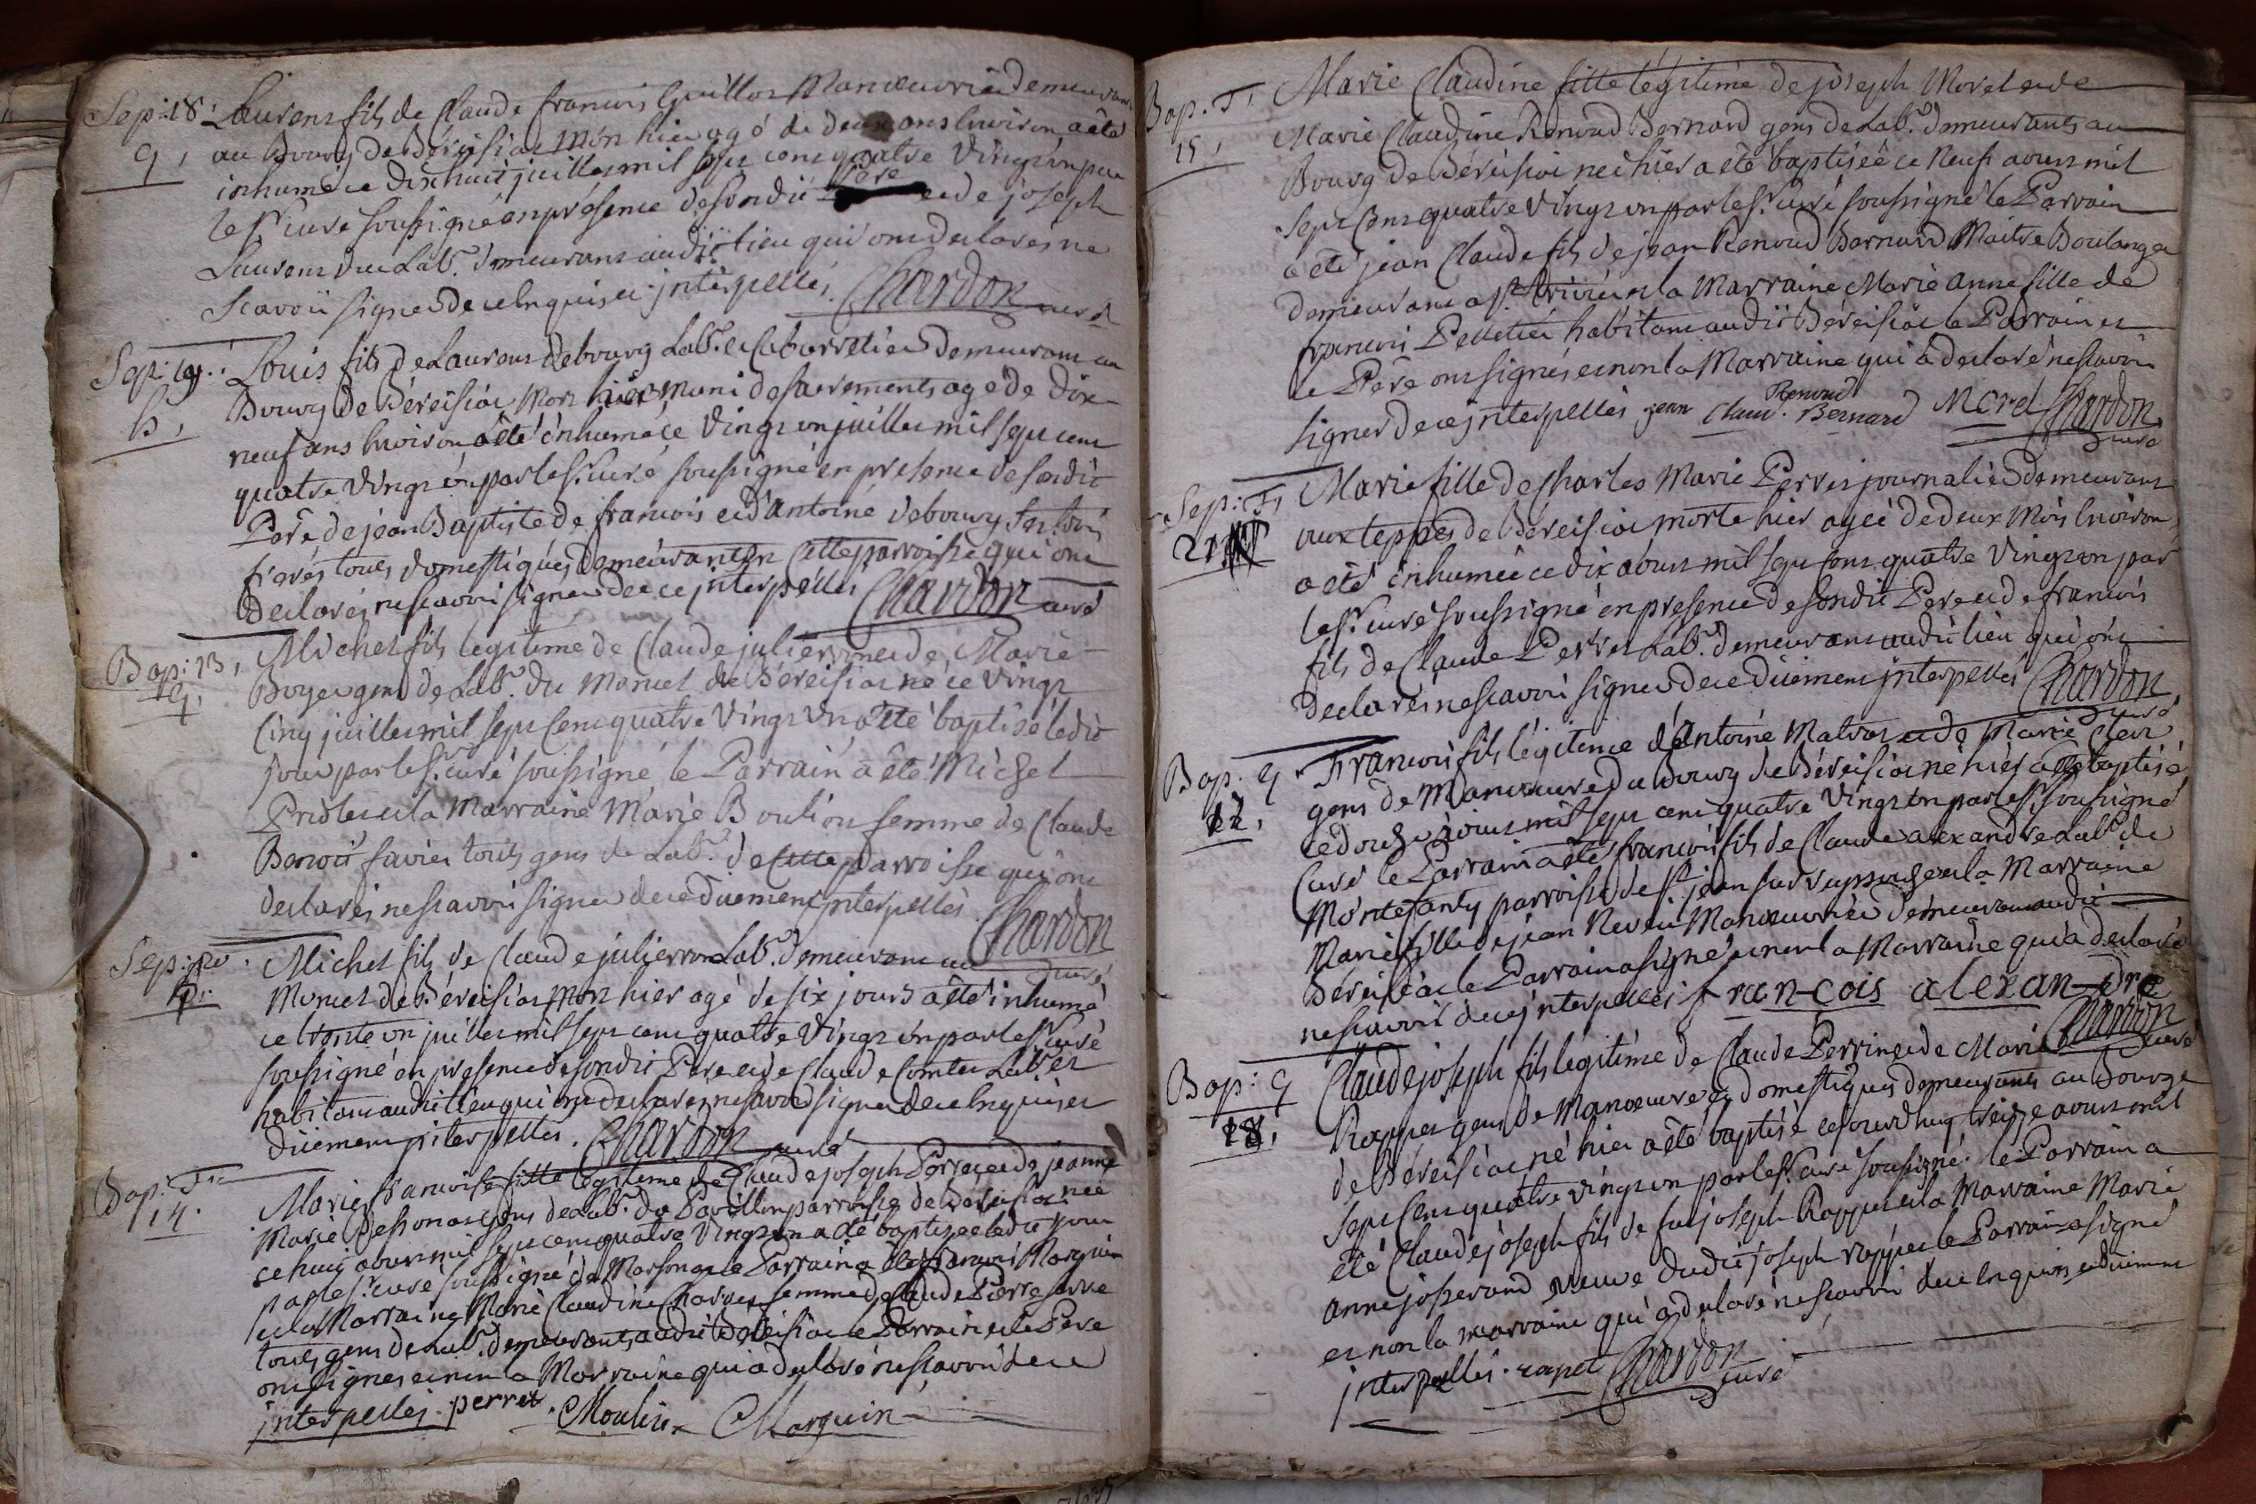 Sep: 18. Laurens fils de Claude francois Guillot Manoeuvrier demeurant
g, au Bourg de Béreisiat mort hier agé de deux ans Environ a été
inhumé ce dix huit juillet mil sept cens quatre Vingt un par
le Sr. curé soussigné en présence de son dit Père et de joseph
Laurens Lab.r demeurans audit lieu qui ont declarés ne
scavoir signer de ce Enquis et interpellés. Chardon curé
Sep: 19. Louis fils de Laurens debourg Lab.r et Cabarretier demeurant au
h, Bourg de Béreisiat Mort hier muni des sacrements agé de dix-
neuf ans Environ a été inhumé ce Vingt un juillet mil sept cens
quatre Vingt un par le Sr. Curé soussigné en présence de son dit
Père de jean Baptiste de francois et d'antoine debourg ses trois
fréres tous domestiques demeurants en cette parroisse qui ont
declarés ne scavoir signer de ce interpellés Chardon curé
Bap: 13, Michel fils legitime de Claude julierron et de Marie
g, Boyer gens de Lab.r du Moncel de Béreisiat né ce Vingt
Cinq juillet mil sept Cens quatre Vingt Un a été baptisé ledit
jour par le Sr. curé soussigné le Parrain a été Michel
et la Marraine Marie Boulion femme de Claude
Benoit favier touts gens de Lab.r de cette parroisse qui ont
declarés ne scavoir signer de ce duement interpellés. Chardon
curé
Sep: 20. Michel fils de Claude julierron Lab.r demeurant au
g. Moncel de Béreisiat Mort hier agé de six jours a été inhumé
ce trente un juillet mil sept cens quatre Vingt un par le Sr. Curé
soussigné en présence de son dit Père et de Claude Comte Lab.r et
habitant audit lieu qui ont declarés ne scavoir signer de ce Enquis et
duement interpellés. Chardon curé
Bap: F, Marie francoise fille légitime de Claude joseph Perret et de jeanne
14. Marie gens de Lab.r du Pavillon parroisse de Béreisiat née
ce huit aoust mil sept cens quatre Vingt un a été baptizée le dit jour
par le Sr. curé soussigné de Marsonas le Parrain a été francois Marguin
et la Marraine Marie Claudine femme de Claude Pierre
touts gens de Lab.r demeurants audit Béreisiat le Parrain et le Père
ont signés et non la Marraine qui a declaré ne scavoir de ce
interpellés. perret. Moulin Marguin
Bap. F, Marie Claudine fille légitime de joseph Morel et de
15, Marie Claudine Renoud Bernard gens de Lab.r demeurants au
Bourg de Béreisiat née hier a été baptisée ce Neuf aoust mil
Sept Cens quatre Vingt un par le Sr. curé soussigné le Parrain
a été jean Claude fils de jean Renoud Bernard Maitre Boulanger
demeurant a St. trivier et la Marraine Marie anne fille de
francois Pelletier habitant audit Béreisiat le Parrain et
le Père ont signés et non la Marraine qui a declaré ne scavoir
signer de ce interpellés. jean Claud. Renoud Bernard Morel Chardon
curé
Sep: F, Marie fille de Charles Marie Perret journalier demeurant
21 aux teppes de Béreisiat morte hier agée de deux Mois Environ
a été inhumée ce dix aoust mil sept Cens quatre Vingt un par
le Sr. curé soussigné en presence de son dit Pere et de francois
fils de Claude Perret Lab.r demeurans audit lieu qui ont
declarés ne scavoir signer de ce duement interpellés Chardon
curé
Bap. g. Francois fils légitime d'Antoine Matras et de Marie
12, gens de Manoeuvre du Bourg de Béreisiat né hier a été baptisé
ce douze aoust mil sept cens quatre Vingt un par le Sr. soussigné
Curé le Parrain a été francois fils de Claude alexandre Lab.r de
Montefanty parroisse de St. jean sur reyssouze et la Marraine
Marie fille de jean Neveu Manoeuvrier demeurant audit
Béreisiat le Parrain a signé et non la Marraine qui a declaré
ne scavoir de ce interpellés. francois alexandre
Chardon curé
Bap: g Claude joseph fils légitime de Claude Perrin et de Marie
18, Rappet gens de Manoeuvre et domestiques demeurants au Bourg
de Béreisiat né hier a été baptisé cejourdhuy treize aoust mil
sept Cens quatre Vingt un par le Sr. curé soussigné. le Parrain a
été Claude joseph fils de feu joseph Rappet et la Marraine Marie
anne josserand veuve dudit joseph rappet le Parrain a signé
et non la marraine qui a declaré ne scavoir de ce Enquis et duement
interpellés. rapet Chardon
curé